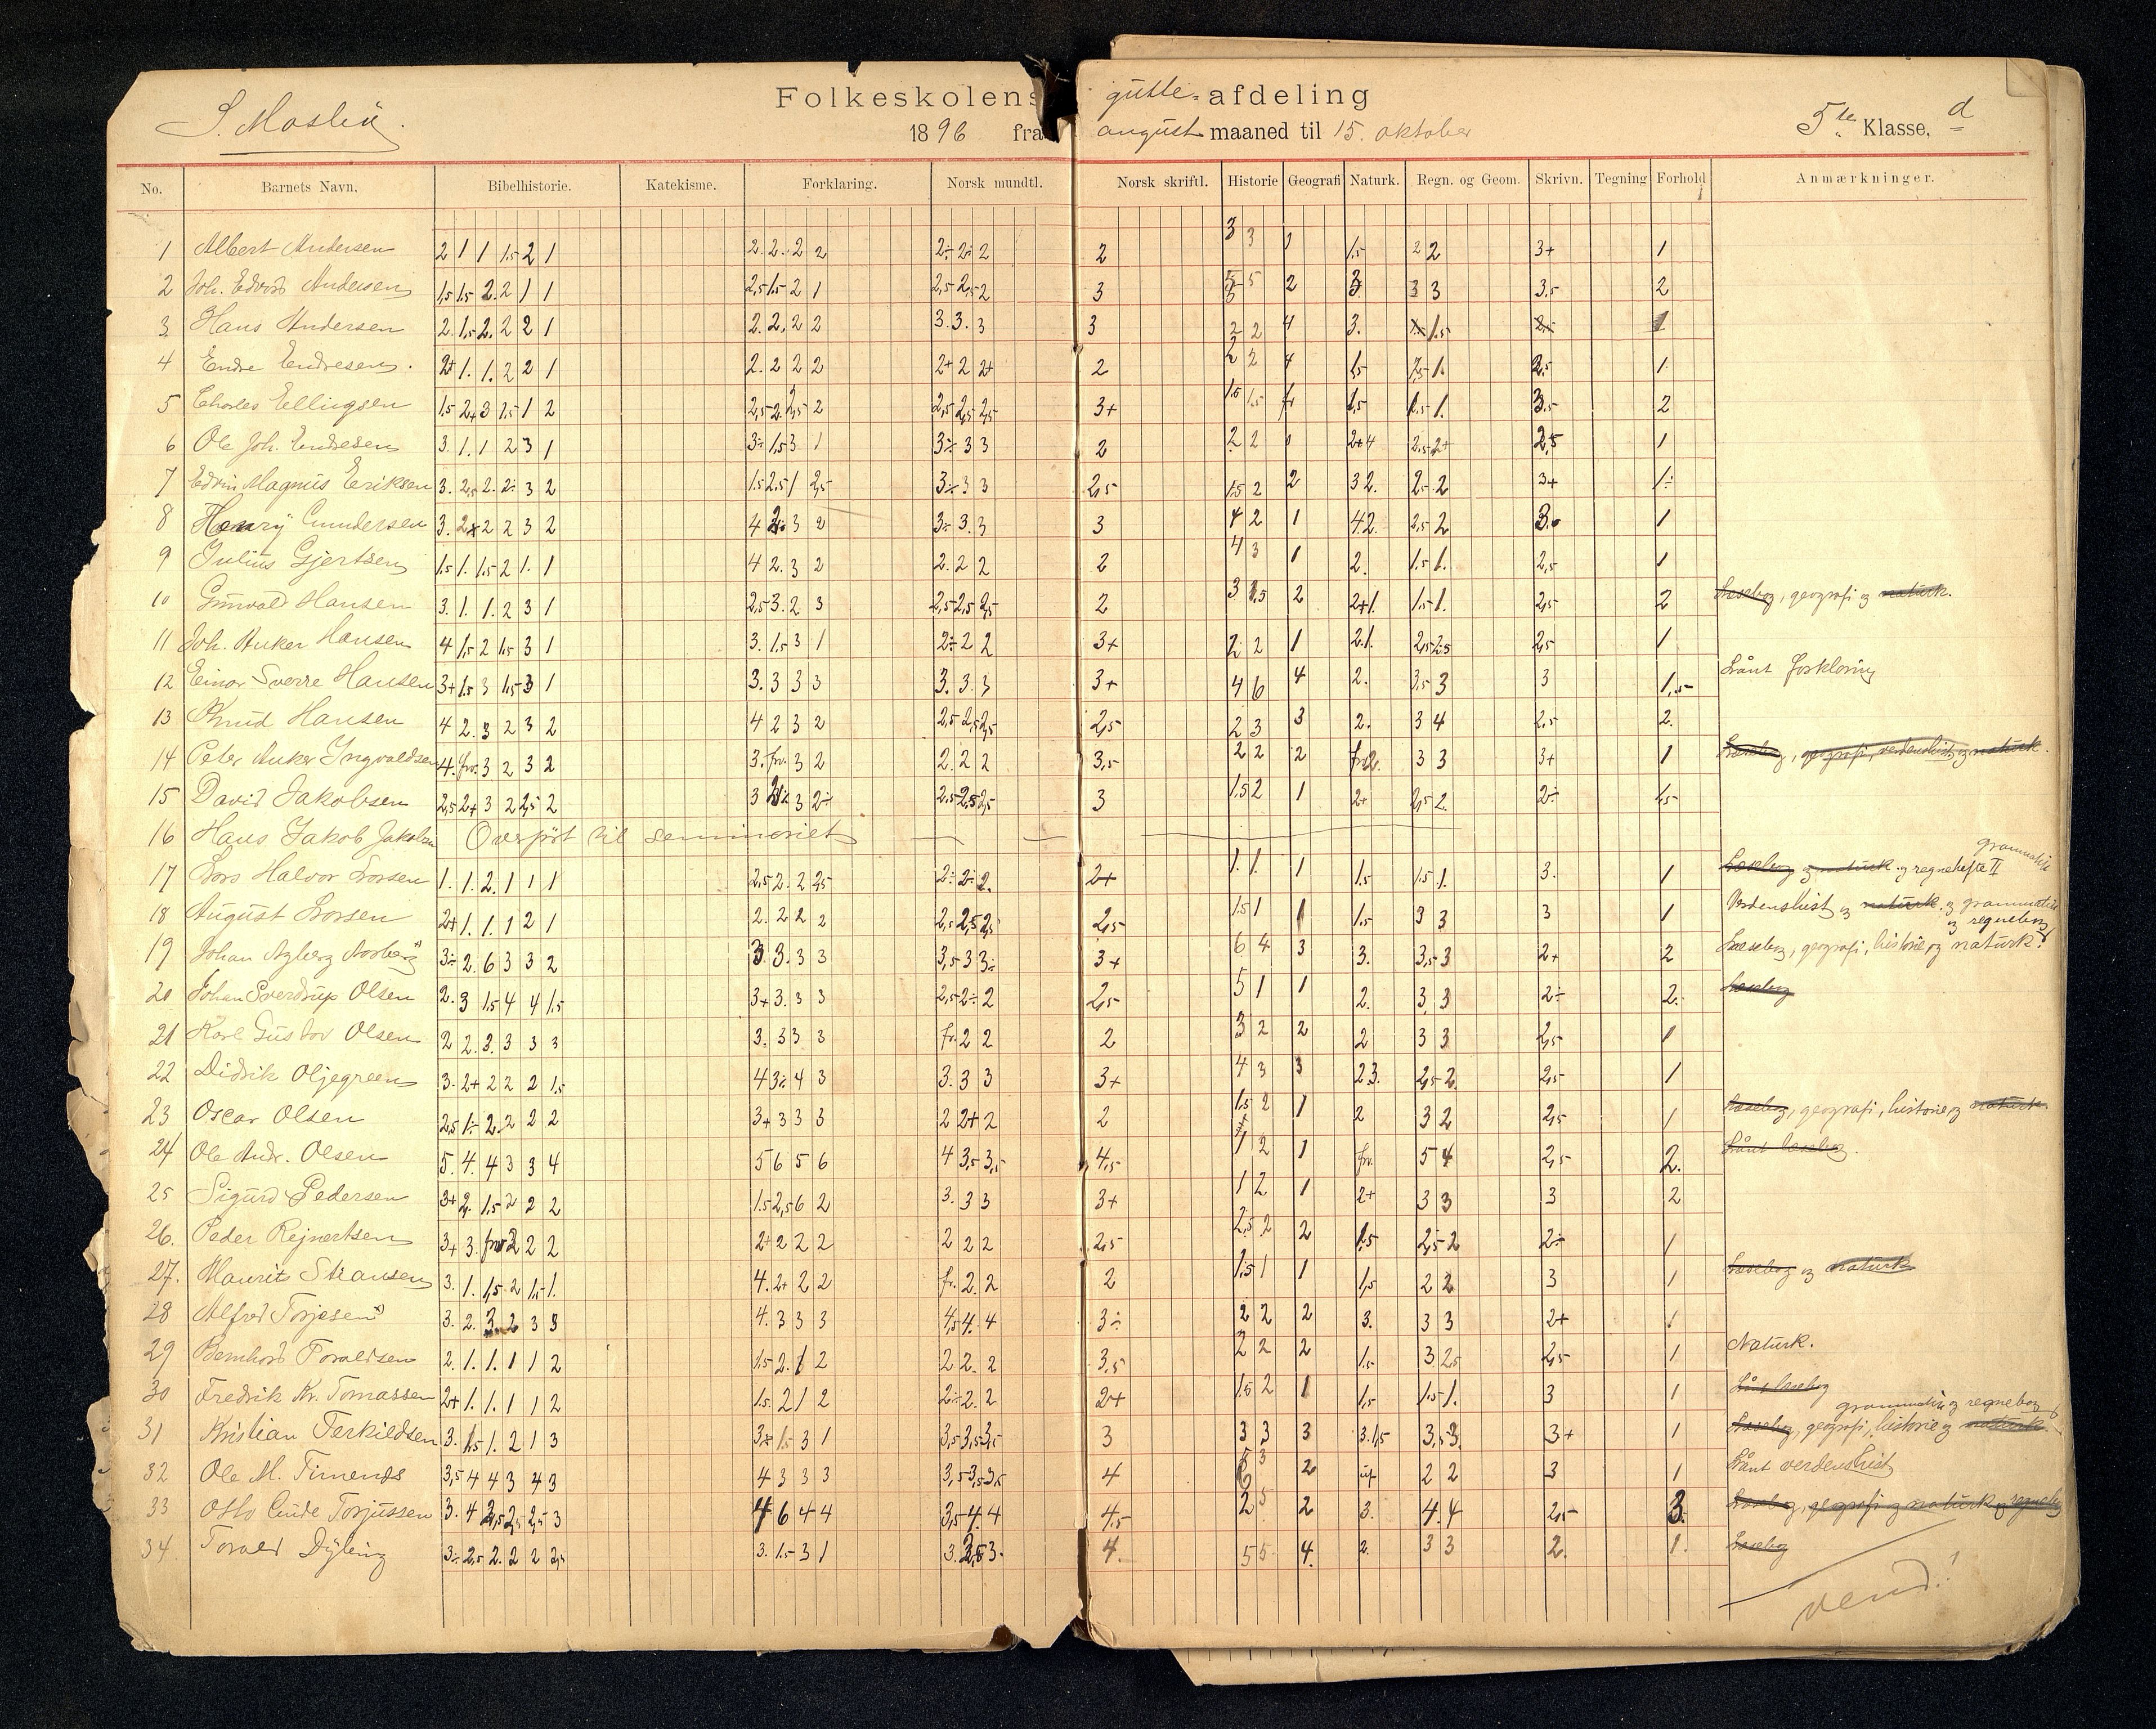 Folkeskolens gutte-afdeling
S. Mosbø.
1896 fra august maaned til 15. oktober
5te Klasse, d
No. Barnets Navn. Bibelhistorie. Katekisme. Forklaring. Norsk mundtl. Norsk skriftl. Historie Geografi Naturk. Regn. og Geom. Skrivn. Tegning Forhold Anmærkninger.
1 Albert Andersen 2 1 1 1,5 2 1 2. 2. 2 2 2÷ 2÷ 2 2 3 3 1 1,5 2 2 3+ 1
2 Joh. Edvard Andersen 1,5 1,5 2. 2 1 1 2,5 1,5 2 1 2,5 2,5 2 3 5 2 3. 3 3 3,5 2
3 Hans Andersen 2. 1,5 2. 2 2 1 2. 2. 2 2 3. 3. 3 3 2 2 4 3. 1,5 1
4 Endre Endresen. 2+ 1. 1. 2 2 1 2. 2 2 2 2+ 2 2+ 2 2 2 4 1,5 2,5 1. 2,5 1.
5 Charles Ellingsen 1,5 2+ 3 1,5 1 2 2,5 2. 2,5 2 2,5 2,5 2,5 3+ 1,5 1,5 fr 1,5 1,5 1. 3,5 2
6 Ole Joh. Endresen 3. 1. 1 2 3 1 3÷ 1,5 3 1 3÷ 3 3 2 2 2 1 2+ 4 2,5 2+ 2,5 1
7 Edvin Magnus Eriksen 3. 2,5 2. 2÷ 3 2 1,5 2,5 1 2,5 3÷ 3 3 2,5 1,5 2 2 3 2. 2,5 2 3+ 1÷
8 Henry Gundersen 3. 2+ 2 2 3 2 4 2÷ 3 2 3÷ 3. 3 3 4 2 1 4 2. 2,5 2 3. 1
9 Julius Gjertsen 1,5 1. 1,5 2 1. 1 4 2. 3 2 2. 2 2 2 4 3 1 2. 1,5 1. 2,5 1
10 Gunvald Hansen 3. 1. 1. 2 3 1 2,5 3. 2 3 2,5 2,5 2,5 2 3 1,5 2 2+ 1. 1,5 1. 2,5 2 Læsebog, geografi og naturk.
11 Joh. Anker Hansen 4 1,5 2 1,5 3 1 3. 1,5 3 1 2÷ 2 2 3+ 2 2 1 2. 1. 2,5 2,5 2,5 1
12 Einar Sverre Hansen 3+ 1,5 3 1,5 3 1 3. 3 3 3 3. 3. 3 3+ 4 6 4 2. 3,5 3 3 1,5 Lånt forklaring
13 Knud Hansen 4 2. 3 2 3 2 4 2 3 2 2,5 2,5 2,5 2,5 2 3 3 2. 3 4 2,5 2.
14 Peter Anker Ingvaldsen 4. fr. 3 2 3 2 3. fr. 3 2 2. 2 2 3,5 2 2 2 fr. 2. 3 3 3+ 1 Læsebog, geografi, verdenshist. og naturk.
15 David Jakobsen 2,5 2+ 3 2 2,5 2 3 2÷ 3 2÷ 2,5 2,5 2,5 3 1,5 2 1 2+ 2,5 2. 2÷ 1,5
16 Hans Jakob Jakobsen Overført til seminariet
grammatik
17 Lars Halvor Larsen 1. 1. 2. 1 1 1 2,5 2. 2 2,5 2÷ 2÷ 2. 2+ 1. 1. 1 1,5 1,5 1. 3. 1 Læsebog og naturk. og regnehefte II
18 August Larsen 2+ 1. 1. 1 2 1 2. 2 2 2 2,5 2,5 2,5 2,5 1,5 1 1 1,5 3 3 3 1 Verdenshist. og naturk. og grammatik
og regnebog
19 Johan Nyberg Norberg 3÷ 2. 6 3 3 2 3 3. 3 3 3,5 3 3÷ 3+ 6 4 3 3. 3,5 3 2+ 2 Læsebog, geografi, historie og naturk.
20 Johan Sverdrup Olsen 2. 3 1,5 4 4 1,5 3+ 3. 3 3 2,5 2÷ 2 2,5 5 1 1 2. 3 3 2÷ 2. Læsebog
21 Karl Gustav Olsen 2 2. 3. 3 3 3 3. 3 3 3 fr. 2 2 2 3 2 2 2 3 3 2,5 1
22 Didrik Oljegreen 3. 2+ 2 2 2 1,5 4 3÷ 4 3 3. 3 3 3+ 4 3 3 2 3. 2,5 2. 2,5 1
23 Oscar Olsen 2,5 1÷ 2. 2 2 2 3+ 3 3 3 2 2+ 2 2 1,5 2 1 2 3 2 2,5 1 Læsebog, geografi, historie og naturk.
24 Ole Andr. Olsen 5. 4. 4 3 3 4 5 6 5 6 4 3,5 3,5 4,5 1 2 1 fr. 5 4 2,5 2. Lånt læsebog.
25 Sigurd Pedersen 3+ 2. 1,5 2 2 2 1,5 2,5 6 2 3. 3 3 3+ 1 2 1 2+ 3 3 3 2
26. Peder Rejnertsen 3+ 3. fr. 2 2 2 2+ 2 2 2 2 2 2 2,5 2,5 2 2 1,5 2,5 2 2÷ 1
27. Maurits Stiansen 3. 1. 1,5 2 1,5 1. 4. 2+ 2 2 fr. 2. 2 2 1,5 1 1 1,5 2 2 3 1 Læsebog og naturk
28 Alfred Torjesen 3. 2. 3. 2 3 3 4. 3 3 3 4,5 4. 4 3÷ 2 2 2 3. 3 3 2+ 1
29 Bernhard Toraldsen 2. 1. 1. 1 1 2 1,5 2. 1 2 2 2. 2 3,5 2 2 2 1,5 3 2,5 2,5 1 Naturk.
30 Fredrik Kr. Tomassen 2+ 1. 1. 1 1 2 1,5. 2 1 2 2÷ 2. 2 2+ 1,5 2 1 1,5 1,5 1. 3 1 Lånt læsebog
grammatik og regnebog
31 Kristian Terkildsen 3. 1,5 1. 2 1 3 3+ 1,5 3 1 3,5 3,5 3,5 3 3 3 3 3. 1,5 3,5 3. 3+ 1 Læsebog, geografi, historie og naturk.
32 Ole M. Timenes 3,5 4 4 3 4 3 4 3 3 3 3,5 3,5 3,5 4 6 3 2 2 2 3 1 Lånt verdenshist
33 Otto Gude Torjussen 3. 4 2,5 2,5 2,5 3 4 6 4 4 3,5 4. 4 4,5 2 5 2 3. 4. 4 2,5 3. Læsebog, geografi og naturk. og regnebog
34 Torald Dybing 3÷ 2,5 2. 2 2 2,5 3. 1,5 3 1 3. 2,5 3. 4. 5 5 4. 2. 3 3 2. 1. Læsebog
vend!